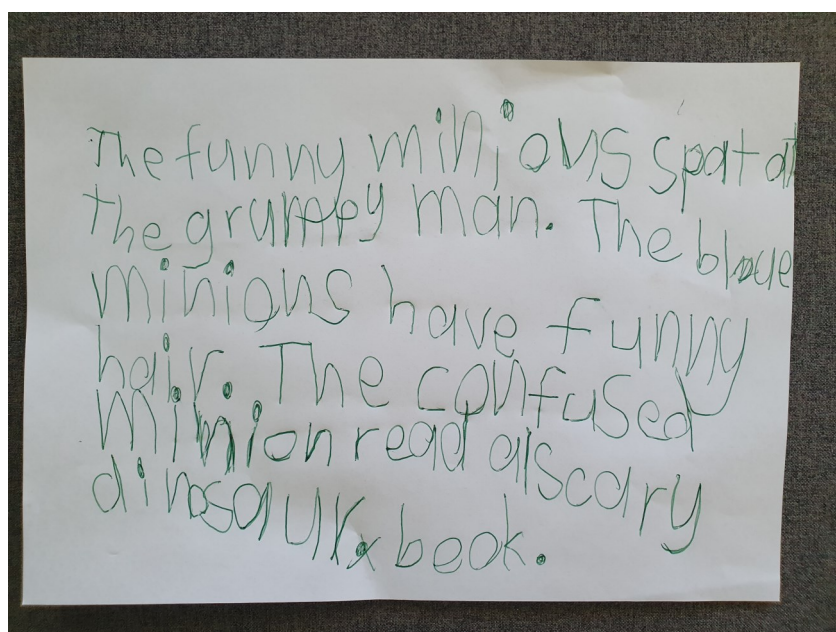 The funny minions spat at
the grumpy man. The blue
minions have funny
hair. The confused
minion read a scary
dinosaur. book.